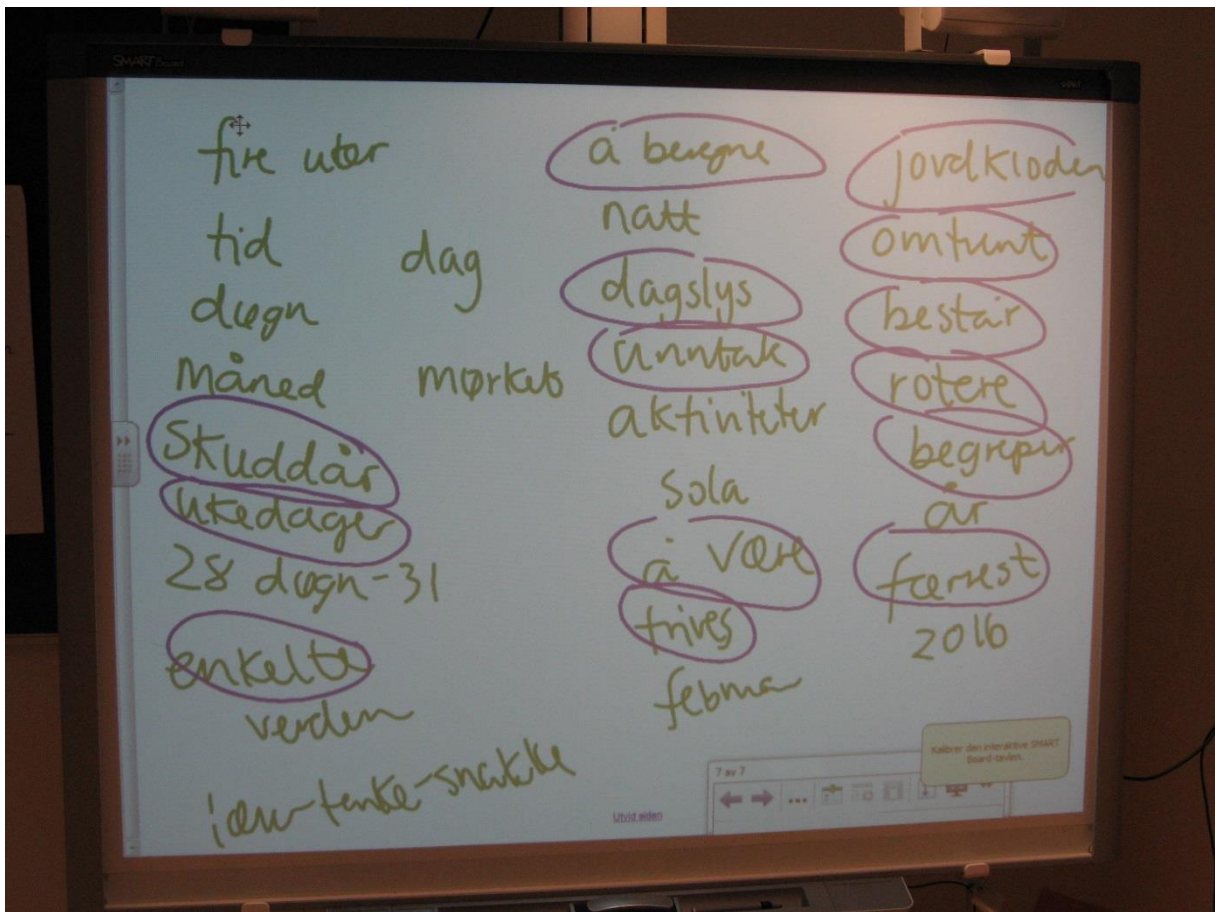 SMART Board
fire uker
tid
dag
døgn
måned
mørket
Skuddår
ukedager
28 døgn-31
enkelte
verden
tenke-snakke
å beregne
natt
dagslys
unntak
aktiviteter
sola
å være
trives
februar
jordkloden
omtrent
består
rotere
begreper
år
færrest
2016
Kalibrer den interaktive SMART
Board-tavlen.
7 av 7
Utvid siden